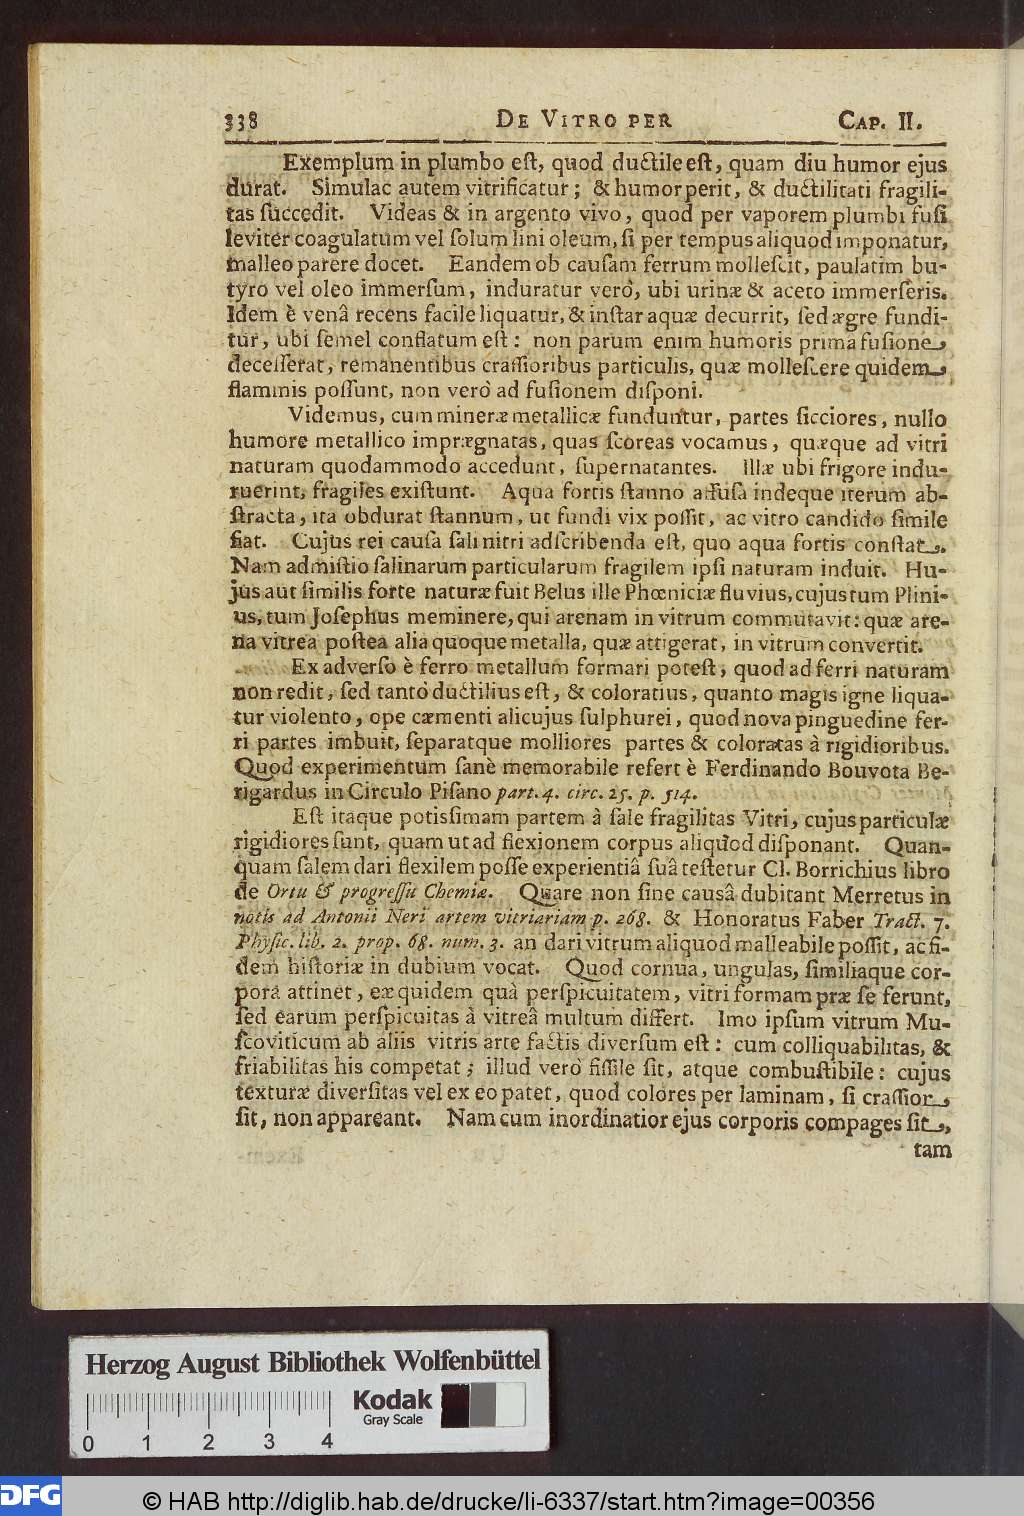 338 DE VITRO PER CAP. II.
Exemplum in plumbo eſt, quod ductile eſt, quam diu humor ejus
durat. Simulac autem vitrificatur; & humor perit, & ductilitati fragili-
tas ſuccedit. Videas & in argento vivo, quod per vaporem plumbi fuſi
leviter coagulatum vel ſolum lini oleum, ſi per tempus aliquod imponatur,
malleo parere docet. Eandem ob cauſam ferrum molleſcit, paulatim bu-
tyro vel oleo immerſum, induratur verò, ubi urinæ & aceto immerſeris.
Idem è venâ recens facile liquatur, & inſtar aquæ decurrit, ſed ægre fundi-
tur, ubi ſemel conflatum eſt: non parum enim humoris prima fuſione
deceſſerat, remanentibus craſſioribus particulis, quæ molleſcere quidem,
flammis poſſunt, non verò ad fuſionem diſponi.
Videmus, cum mineræ metallicæ funduntur, partes ſicciores, nullo
humore metallico imprægnatas, quas ſcoreas vocamus, quæque ad vitri
naturam quodammodo accedunt, ſupernatantes. Illæ ubi frigore indu-
ruerint, fragiles exiſtunt. Aqua fortis ſtanno affuſa indeque iterum ab-
ſtracta, ita obdurat ſtannum, ut fundi vix poſſit, ac vitro candido ſimile
fiat. Cujus rei cauſa ſali nitri adſcribenda eſt, quo aqua fortis conſtat.
Nam admiſtio ſalinarum particularum fragilem ipſi naturam induit. Hu-
jus aut ſimilis forte naturæ fuit Belus ille Phœniciæ fluvius, cujus tum Plini-
us, tum Joſephus meminere, qui arenam in vitrum commutavit: quæ are-
na vitrea poſtea alia quoque metalla, quæ attigerat, in vitrum convertit.
Ex adverſo è ferro metallum formari poteſt, quod ad ferri naturam
non redit, ſed tantò ductilius eſt, & coloratius, quanto magis igne liqua-
tur violento, ope cæmenti alicujus ſulphurei, quod nova pinguedine fer-
ri partes imbuit, ſeparatque molliores partes & coloratas à rigidioribus.
Quod experimentum ſanè memorabile refert è Ferdinando Bouvota Be-
rigardus in Circulo Piſano part. 4. circ. 25. p. 514.
Eſt itaque potisſimam partem à ſale fragilitas Vitri, cujus particulæ
rigidiores ſunt, quam ut ad flexionem corpus aliquod diſponant. Quan-
quam ſalem dari flexilem poſſe experientiâ ſuâ teſtetur Cl. Borrichius libro
de Ortu & progreſſu Chemiæ. Quare non ſine causâ dubitant Merretus in
notis ad Antonii Neri artem vitriariam p. 268. & Honoratus Faber Tract. 7.
Phyſic. lib. 2. prop. 68. num. 3. an dari vitrum aliquod malleabile poſſit, ac fi-
dem hiſtoriæ in dubium vocat. Quod cornua, ungulas, ſimiliaque cor-
pora attinet, ea quidem quà perſpicuitatem, vitri formam præ ſe ferunt,
ſed earum perſpicuitas à vitreâ multum differt. Imo ipſum vitrum Mu-
ſcoviticum ab aliis vitris arte factis diverſum eſt: cum colliquabilitas, &
friabilitas his competat; illud verò fiſſile ſit, atque combuſtibile: cujus
texturæ diverſitas vel ex eo patet, quod colores per laminam, ſi craſſior
ſit, non appareant. Nam cum inordinatior ejus corporis compages ſit,
tam
Herzog August Bibliothek Wolfenbüttel
Kodak
Gray Scale
0 1 2 3 4
DFG © HAB http://diglib.hab.de/drucke/li-6337/start.htm?image=00356